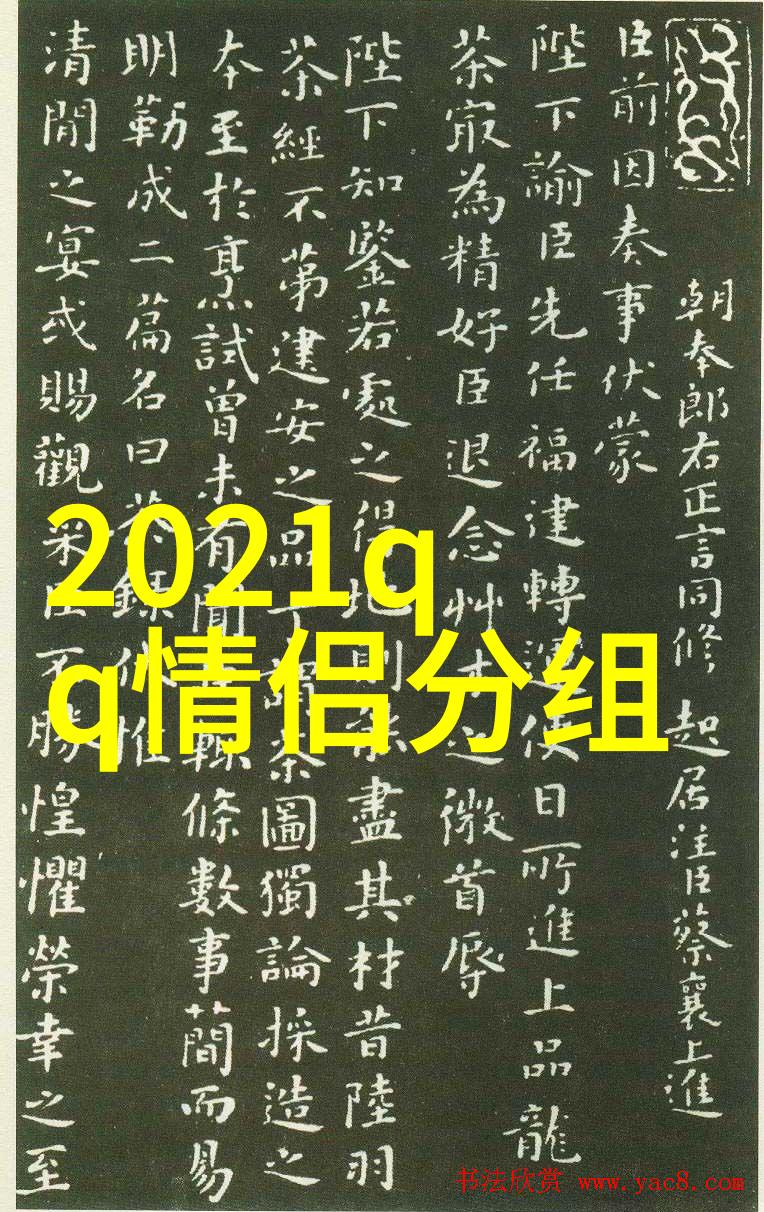 朝奉郎右正言同修起居注臣蔡襄上進
臣前因奏事伏蒙
陛下諭臣先任福建轉運使日所進上品龍
茶㝡為精好臣退念艸木之微首辱
陛下知鑒若處之得地則能盡其材昔陸羽
茶經不第建安之品丁謂茶圖獨論採造之
本至於烹試曾未有聞臣輙條數事簡而易
明勒成二篇名曰茶錄伏惟
清閒之宴或賜觀采臣不勝惶懼榮幸之至
2021q
q情侣分组
书法欣赏 www.yac8.com